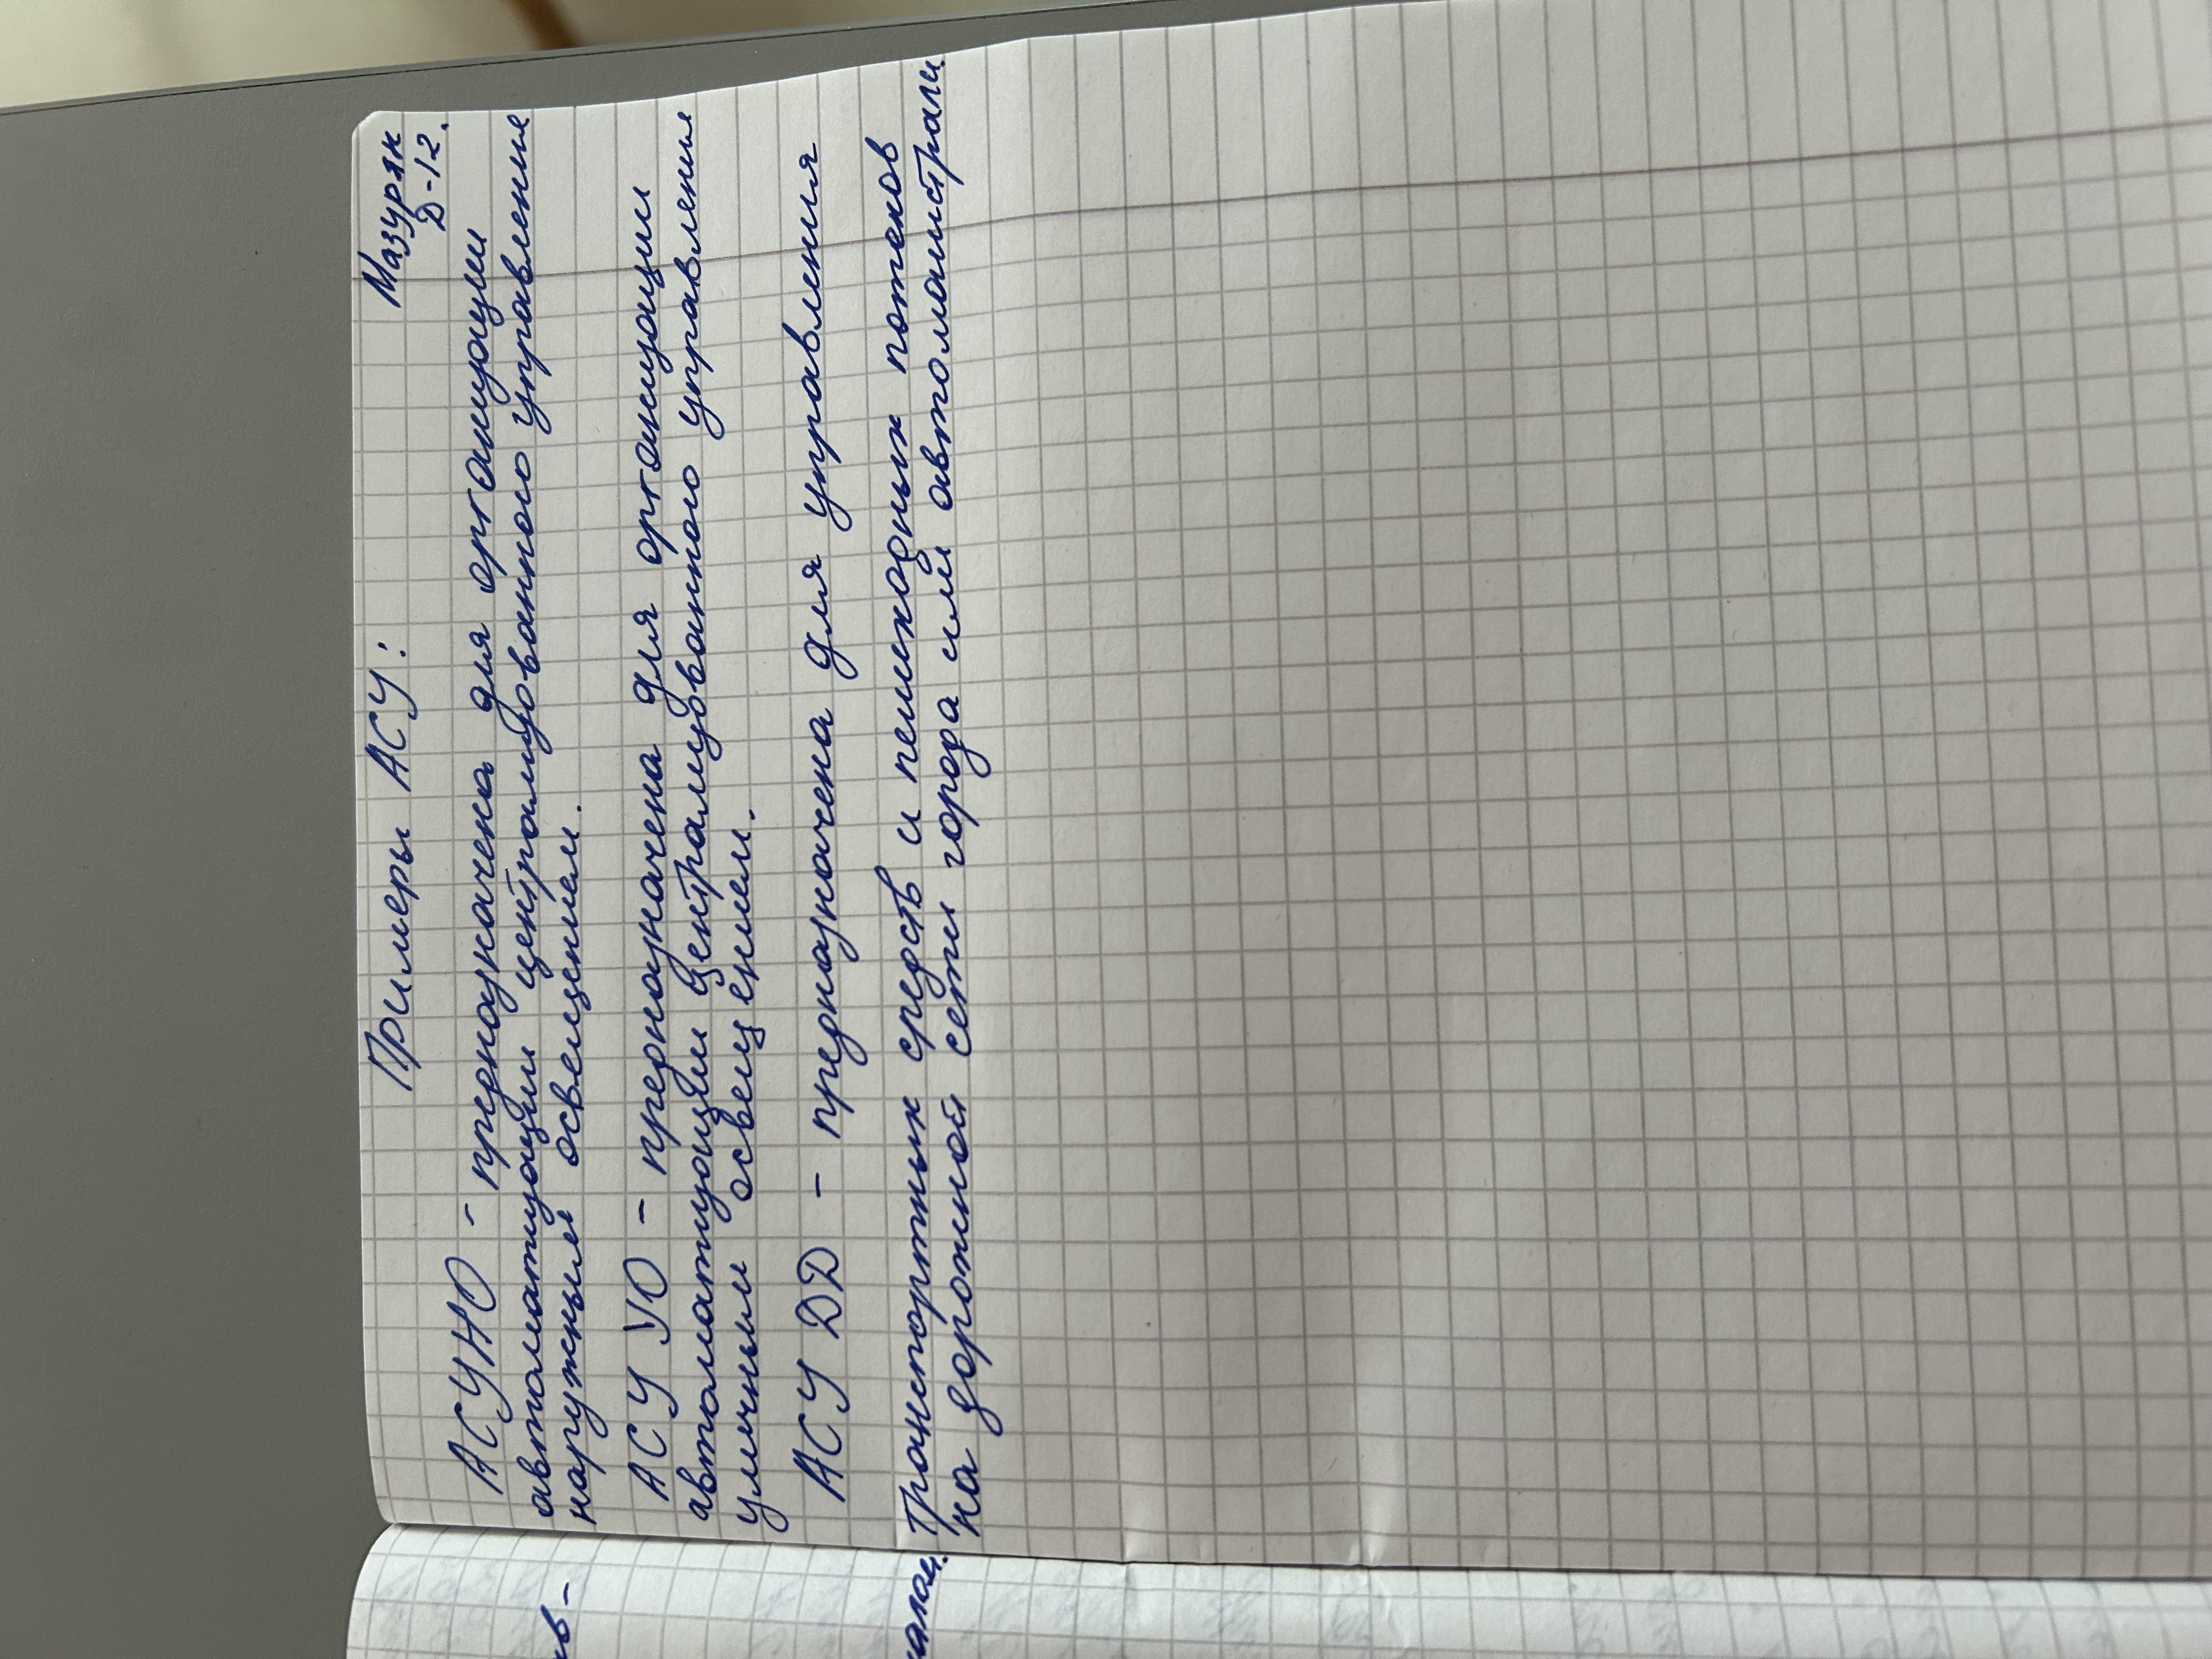 Мазурян
Д-12.
Примеры АСУ:
АСУНО - предназначена для организации
автоматизации централизованного управления
наружным освещением.
АСУ УО - предназначена для организации
автоматизации централизованного управления
уличным освещением.
АСУ ДД - предназначена для управления
транспортных средств и пешеходных потоков
на дорожной сети города или автомагистрали